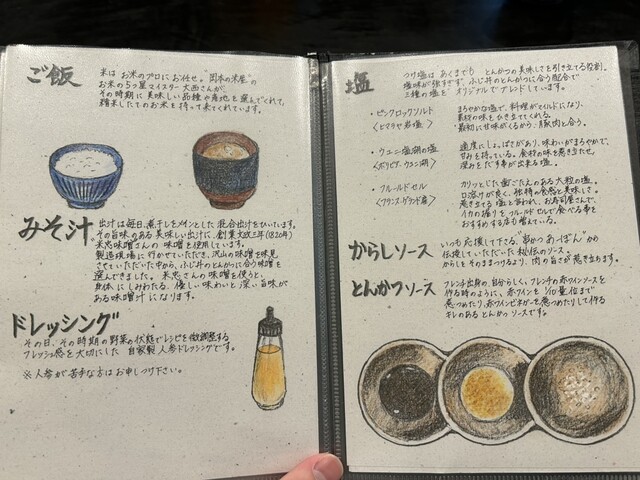 ご飯
米は お米のプロにお任せ。"岡本の米屋"の
お米の5ッ星マイスター 大西さんが、
その時期に美味しい品種や産地を選んでくれて、
精米したてのお米を持って来てくれています。
みそ汁
出汁は毎日、煮干しをメインとした混合出汁をひいています。
その旨味のある美味しい出汁に、創業文政三年(1820年)
"米忠味噌"さんの味噌を使用しています。
製造現場に行かせていただき、沢山の味噌を味見
させていただいた中から、ふじ井のとんかつに合う味噌を
選んできました。米忠さんの味噌を使うと、
身体にしみわたる、優しい味わいと深い旨味が
ある味噌汁になります。
ドレッシング
その日、その時期の野菜の状態でレシピを微調整する
フレッシュ感を大切にした 自家製 人参ドレッシングです。
※人参が苦手な方はお申しつけ下さい。
塩
つけ塩は あくまでも とんかつの美味しさを引き立てる役割。
塩味が強すぎず、ふじ井のとんかつに合う配合で
三種の塩を オリジナルでブレンドしています。
・ピンクロックソルト
〈ヒマラヤ岩塩〉
まろやかな塩で、料理がマイルドになり、
素材の味をひき立てくれる。
最初に甘味がくるから、豚肉と合う。
・ウユニ塩湖の塩
〈ボリビア・ウユニ湖〉
適度にしょっぱさがあり、味わいがまろやかで、
甘みを持っている。食材の味を惹き立たせ、
深みをだす事が出来る塩。
・フルールドセル
〈フランス・ゲランド産〉
カリッとした歯ごたえのある大粒の塩。
口溶けが良く、独特の食感と美味しさ。
惹き立てる塩と言われ、お寿司屋さんで、
イカの握りをフルールドセルで食べる事を
おすすめする方も増えている。
からしソース
いつも応援して下さる"串かつ あーぼん"から
伝授していただいた秘伝のソース。
からしをそのままつけるより、肉の旨さが惹き立ちます。
とんかつソース
フレンチ出身の、自分らしく。フレンチの赤ワインソースを
作る時のように、赤ワインを 1/10量位まで
煮つめたり、赤ワインビネガーを煮つめたりして作る
キレのあるとんかつソースです。